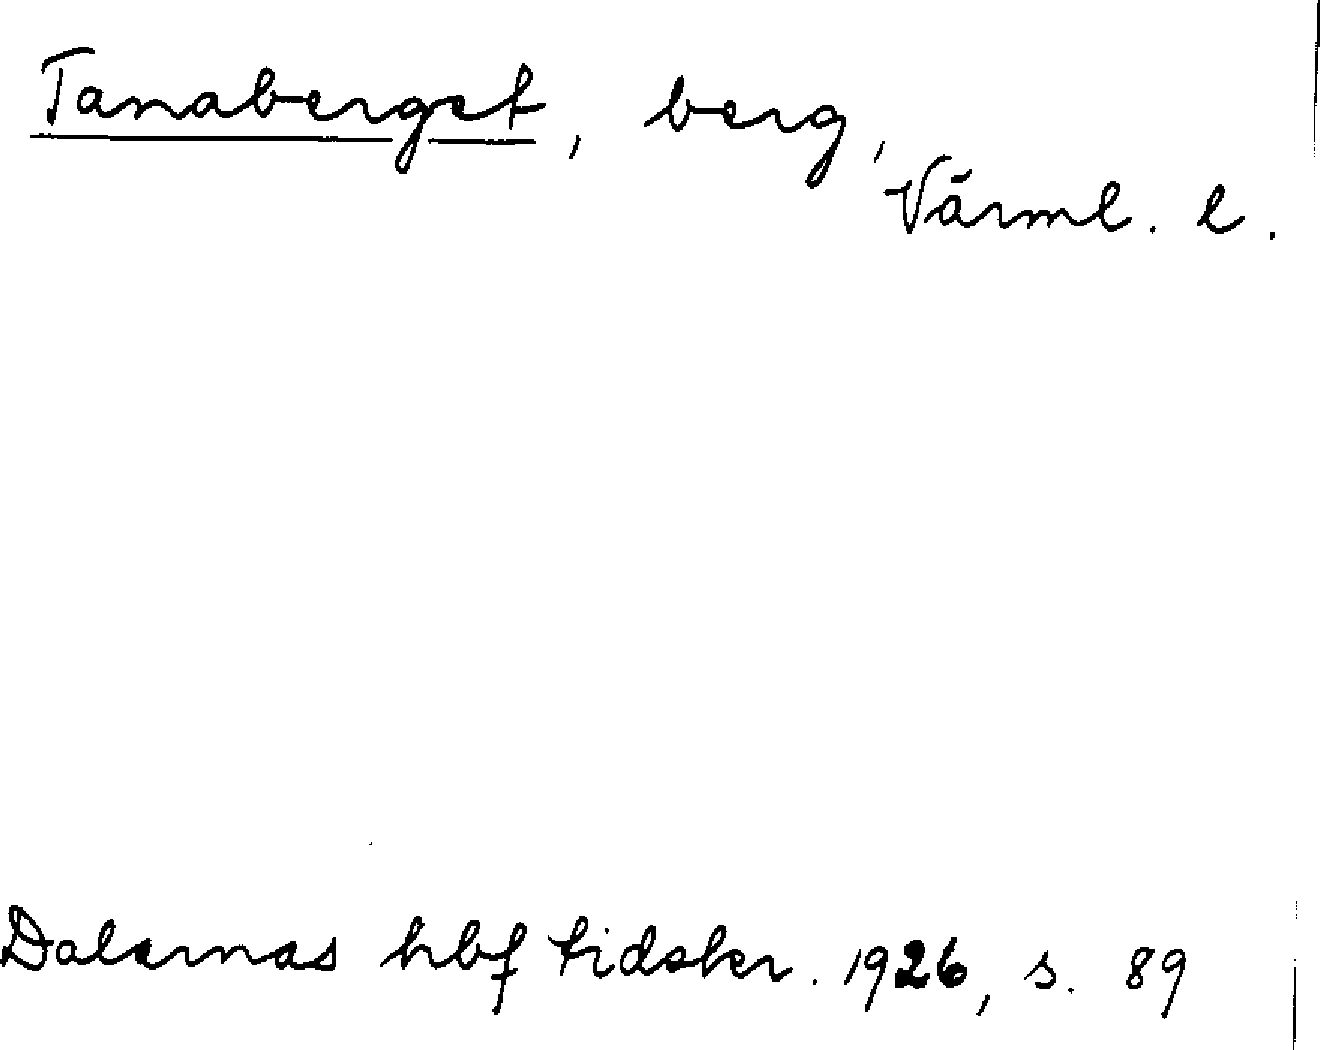 Tanaberget, berg,
Värml. l.
Dalarnas hbf tidskr. 1926, s. 89